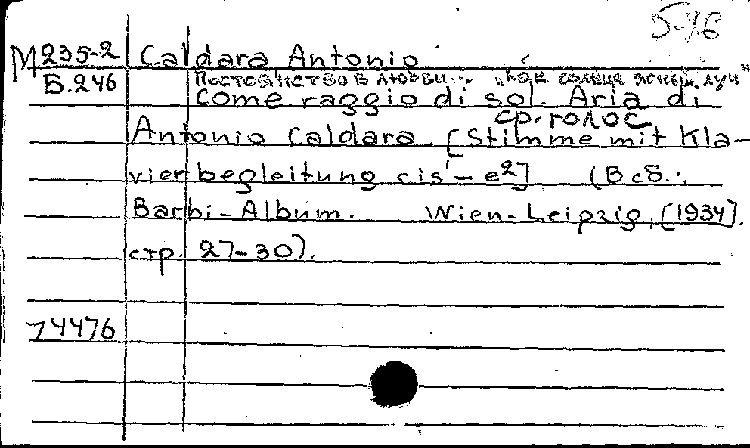 5-46
M 235-2 Caldara Antonio
Б.246 Постоянство в любви...
Come raggio di sol. Aria di
ср. голос
Antonio Caldara. [Stimme mit Kla-
vierbegleitung cis'-e²] (В сб.:
Barbi-Album. Wien-Leipzig, [1934].
стр. 27-30).
74476